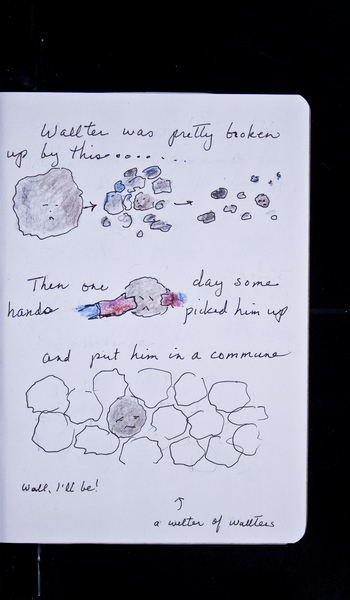 Wallter was pretty broken
up by this.........
Then one day some
hands picked him up
and put him in a commune
Wall, I'll be!
a welter of wallters